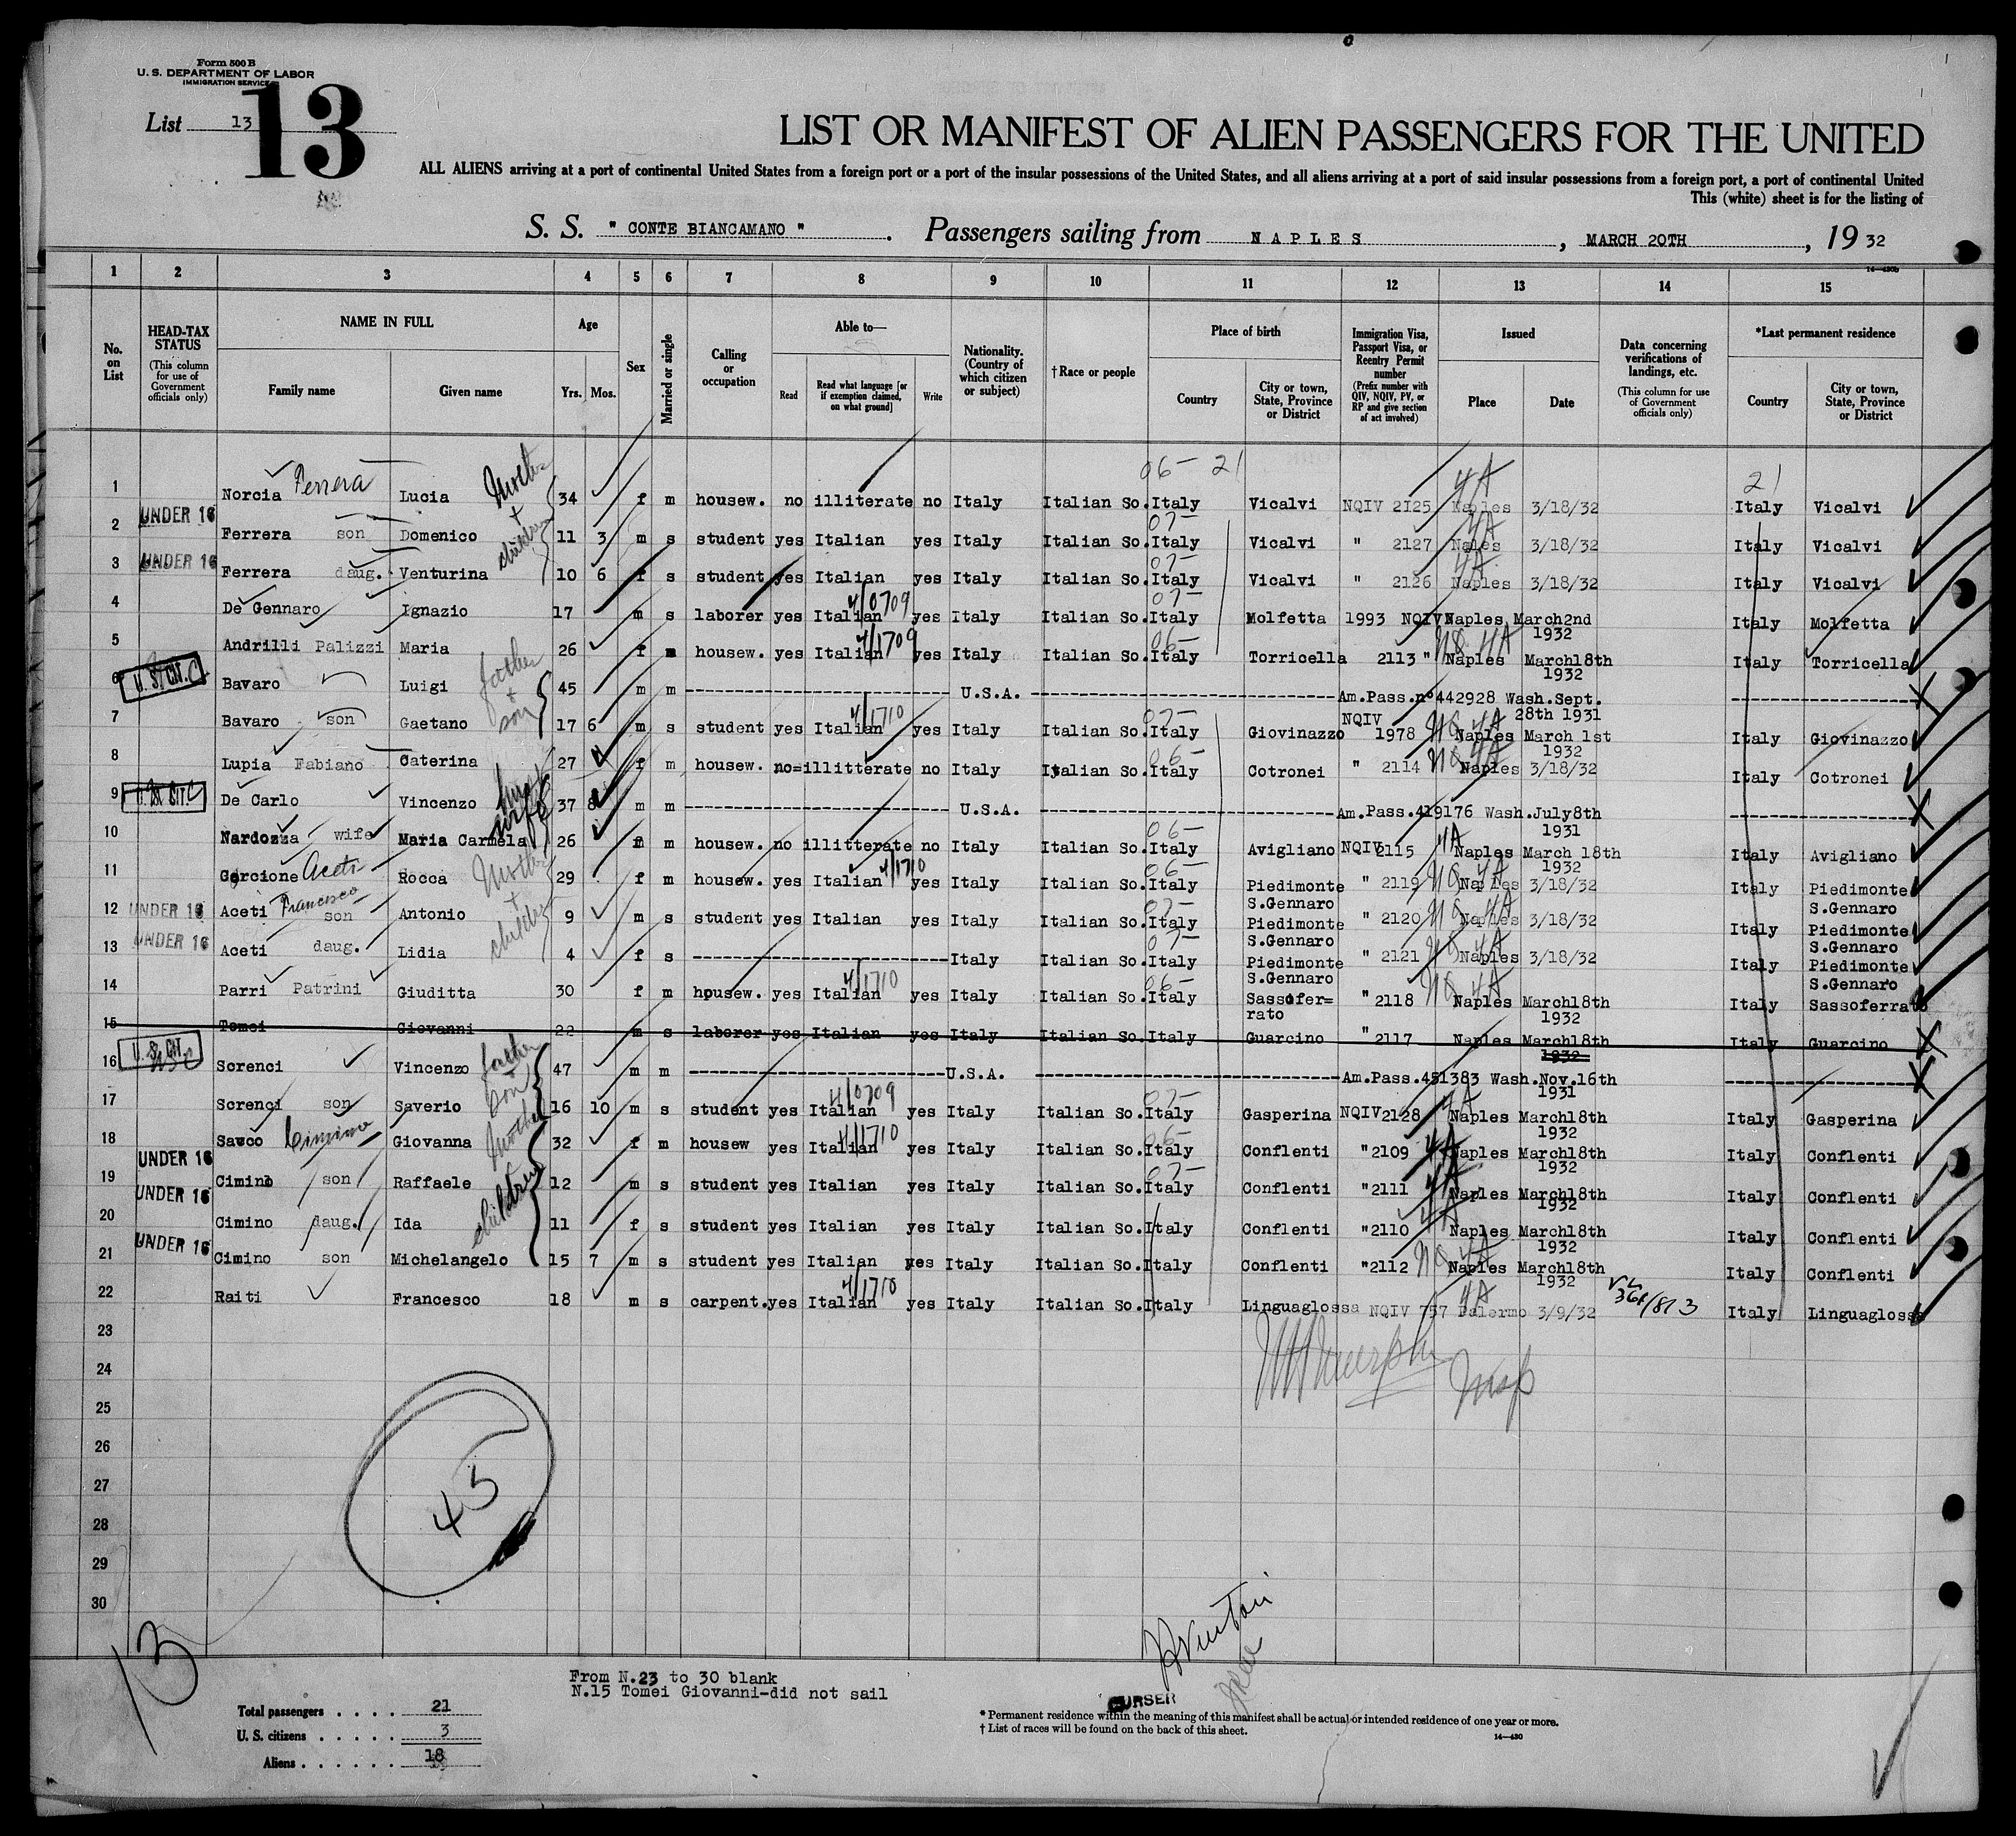 Form 500 B
U. S. DEPARTMENT OF LABOR
IMMIGRATION SERVICE
List 13
13
LIST OR MANIFEST OF ALIEN PASSENGERS FOR THE UNITED
ALL ALIENS arriving at a port of continental United States from a foreign port or a port of the insular possessions of the United States, and all aliens arriving at a port of said insular possessions from a foreign port, a port of continental United
This (white) sheet is for the listing of
S. S. " CONTE BIANCAMANO ". Passengers sailing from NAPLES, MARCH 20TH, 19 32
14—430b
1 2 3 4 5 6 7 8 9 10 11 12 13 14 15
No. on List
HEAD-TAX STATUS (This column for use of Government officials only)
NAME IN FULL
Family name
Given name
Age
Yrs. Mos.
Sex
Married or single
Calling or occupation
Able to—
Read
Read what language [or if exemption claimed, on what ground]
Write
Nationality. (Country of which citizen or subject)
†Race or people
Place of birth
Country
City or town, State, Province or District
Immigration Visa, Passport Visa, or Reentry Permit number (Prefix number with QIV, NQIV, PV, or RP and give section of act involved)
Issued
Place
Date
Data concerning verifications of landings, etc. (This column for use of Government officials only)
*Last permanent residence
Country
City or town, State, Province or District
06- 21 4A 21
1 Norcia Ferrera Lucia Mother + children 34 f m housew. no illiterate no Italy Italian So. Italy Vicalvi NQIV 2125 Naples 3/18/32 Italy Vicalvi
2 UNDER 16 Ferrera son Domenico 11 3 m s student yes Italian yes Italy Italian So. 07- Italy Vicalvi " 2127 4A Naples 3/18/32 Italy Vicalvi
3 UNDER 16 Ferrera daug. Venturina 10 6 f s student yes Italian yes Italy Italian So. 07- Italy Vicalvi " 2126 4A Naples 3/18/32 Italy Vicalvi
4 De Gennaro Ignazio 17 m s laborer yes Italian 4/0709 yes Italy Italian So. 07- Italy Molfetta 1993 NQIV Naples March2nd 1932 Italy Molfetta
5 Andrilli Palizzi Maria 26 f m housew. yes Italian 4/1709 yes Italy Italian So. 06- Italy Torricella 2113 " NQ 4A Naples March18th 1932 Italy Torricella
6 U. S. CIT. Bavaro Luigi father + son 45 m m U.S.A. Am.Pass.nº442928 Wash.Sept. 28th 1931
7 Bavaro son Gaetano 17 6 m s student yes Italian 4/1710 yes Italy Italian So. 07- Italy Giovinazzo NQIV 1978 NQ 4A Naples March 1st 1932 Italy Giovinazzo
8 Lupia Fabiano Caterina 27 f m housew. no=illitterate no Italy Italian So. 06- Italy Cotronei " 2114 NQ 4A Naples 3/18/32 Italy Cotronei
9 U. S. CIT. De Carlo Vincenzo wife 37 8 m m U.S.A. Am.Pass.419176 Wash.July8th 1931
10 Nardozza wife Maria Carmela 26 f m housew. no illitterate no Italy Italian So. 06- Italy Avigliano NQIV 2115 4A Naples March 18th 1932 Italy Avigliano
11 Gercione Aceti Rocca Mother + children 29 f m housew. yes Italian 4/1710 yes Italy Italian So. 06- Italy Piedimonte S.Gennaro " 2119 NQ 4A Naples 3/18/32 Italy Piedimonte S.Gennaro
12 UNDER 16 Aceti Francesco son Antonio 9 m s student yes Italian yes Italy Italian So. 07- Italy Piedimonte S.Gennaro " 2120 NQ 4A Naples 3/18/32 Italy Piedimonte S.Gennaro
13 UNDER 16 Aceti daug. Lidia 4 f s Italy Italian So. 07- Italy Piedimonte S.Gennaro " 2121 NQ 4A Naples 3/18/32 Italy Piedimonte S.Gennaro
14 Parri Patrini Giuditta 30 f m housew. yes Italian 4/1710 yes Italy Italian So. 06- Italy Sassofer= rato " 2118 NQ 4A Naples March18th 1932 Italy Sassoferrato
15 Tomei Giovanni 22 m s laborer yes Italian yes Italy Italian So. Italy Guarcino "2117 Naples March18th 1932 Italy Guarcino
16 U. S. CIT. USC Screnci Vincenzo father + son 47 m m U.S.A. Am.Pass.451383 Wash.Nov.16th 1931
17 Screnci son Saverio 16 10 m s student yes Italian 4/0709 yes Italy Italian So. 07- Italy Gasperina NQIV 2128 4A Naples March18th 1932 Italy Gasperina
18 Savco Cimino Giovanna Mother children 32 f m housew yes Italian 4/1710 yes Italy Italian So. 06- Italy Conflenti "2109 4A Naples March18th 1932 Italy Conflenti
19 UNDER 16 Cimino son Raffaele 12 m s student yes Italian yes Italy Italian So. 07- Italy Conflenti "2111 4A Naples March18th 1932 Italy Conflenti
20 UNDER 16 Cimino daug. Ida 11 f s student yes Italian yes Italy Italian So. Italy Conflenti "2110 4A Naples March18th 1932 Italy Conflenti
21 UNDER 16 Cimino son Michelangelo 15 7 m s student yes Italian yes Italy Italian So. Italy Conflenti "2112 NQ 4A Naples March18th 1932 Italy Conflenti
22 Raiti Francesco 18 m s carpent. yes Italian 4/1710 yes Italy Italian So. Italy Linguaglossa NQIV 757 4A Palermo 3/9/32 Italy Linguaglossa
23
24
25
26
27
28
29
30
45
13
From N.23 to 30 blank
N.15 Tomei Giovanni-did not sail
Total passengers . . . . 21
U. S. citizens . . . . . 3
Aliens . . . . . . 18
PURSER
* Permanent residence within the meaning of this manifest shall be actual or intended residence of one year or more.
† List of races will be found on the back of this sheet.
14—430